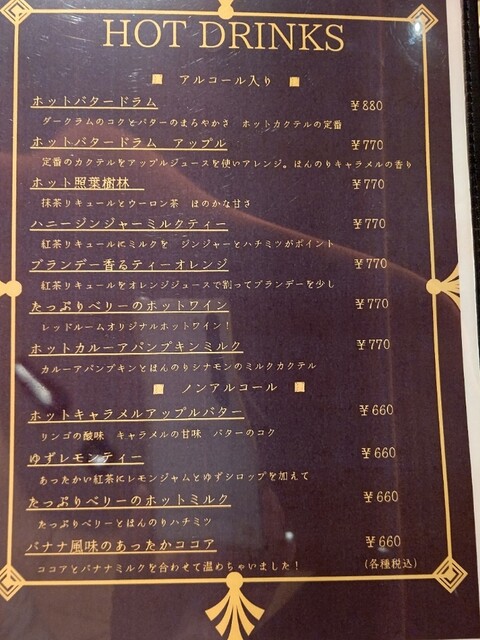 HOT DRINKS
アルコール入り
ホットバタードラム ￥880
ダークラムのコクとバターのまろやかさ ホットカクテルの定番
ホットバタードラム アップル ￥770
定番のカクテルをアップルジュースを使いアレンジ。ほんのりキャラメルの香り
ホット照葉樹林 ￥770
抹茶リキュールとウーロン茶 ほのかな甘さ
ハニージンジャーミルクティー ￥770
紅茶リキュールにミルクを ジンジャーとハチミツがポイント
ブランデー香るティーオレンジ ￥770
紅茶リキュールをオレンジジュースで割ってブランデーを少し
たっぷりベリーのホットワイン ￥770
レッドルームオリジナルホットワイン！
ホットカルーアパンプキンミルク ￥770
カルーアパンプキンとほんのりシナモンのミルクカクテル
ノンアルコール
ホットキャラメルアップルバター ￥660
リンゴの酸味 キャラメルの甘味 バターのコク
ゆずレモンティー ￥660
あったかい紅茶にレモンジャムとゆずシロップを加えて
たっぷりベリーのホットミルク ￥660
たっぷりベリーとほんのりハチミツ
バナナ風味のあったかココア ￥660
ココアとバナナミルクを合わせて温めちゃいました！ (各種税込)